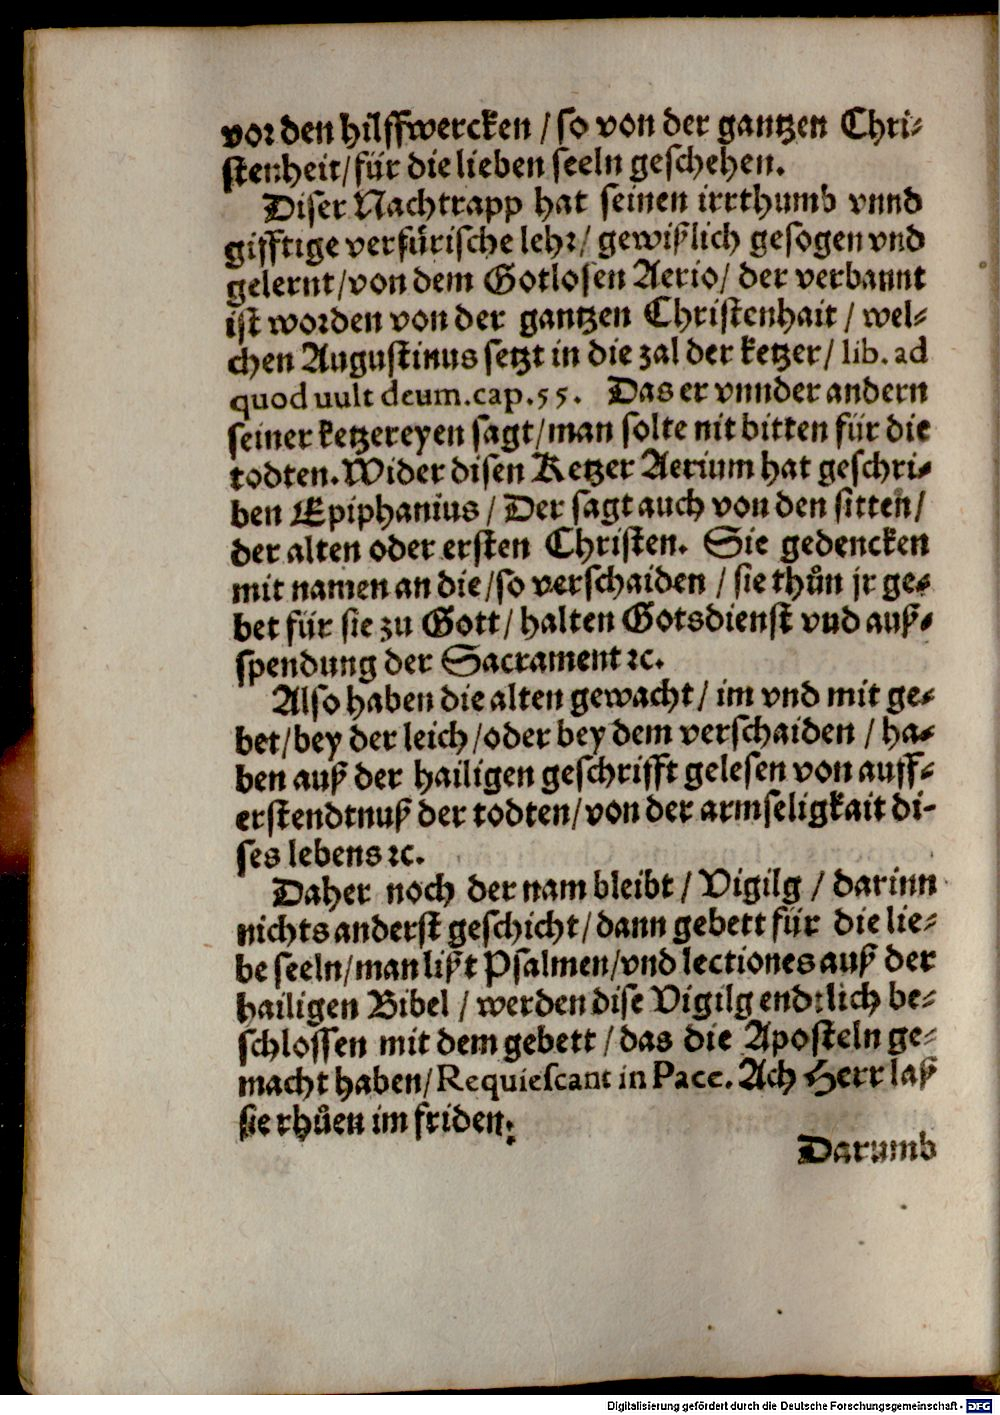 vor den hilffwercken / so von der gantzen Chri-
stenheit/ für die lieben seeln geschehen.
Diser Nachtrapp hat seinen irrthumb vnnd
gifftige verfürische lehr/ gewißlich gesogen vnd
gelernt/von dem Gotlosen Aerio/ der verbannt
ist worden von der gantzen Christenhait / wel-
chen Augustinus setzt in die zal der ketzer/ lib. ad
quod uult deum.cap.55. Das er vnnder andern
seiner ketzereyen sagt/man solte nit bitten für die
todten. Wider disen Ketzer Aerium hat geschri-
ben Epiphanius / Der sagt auch von den sitten/
der alten oder ersten Christen. Sie gedencken
mit namen an die/so verschaiden / sie thůn jr ge-
bet für sie zu Gott/ halten Gotsdienst vnd auß-
spendung der Sacrament ꝛc.
Also haben die alten gewacht/ im vnd mit ge-
bet/bey der leich/oder bey dem verschaiden / ha-
ben auß der hailigen geschrifft gelesen von auff-
erstendtnuß der todten/von der armseligkait di-
ses lebens ꝛc.
Daher noch der nam bleibt / Vigilg / darinn
nichts anderst geschicht/ dann gebett für die lie-
be seeln/man lißt Psalmen/vnd lectiones auß der
hailigen Bibel / werden dise Vigilg endtlich be-
schlossen mit dem gebett / das die Aposteln ge-
macht haben/ Requiescant in Pace. Ach Herr laß
sie rhůen im friden.
Darumb
Digitalisierung gefördert durch die Deutsche Forschungsgemeinschaft - DFG